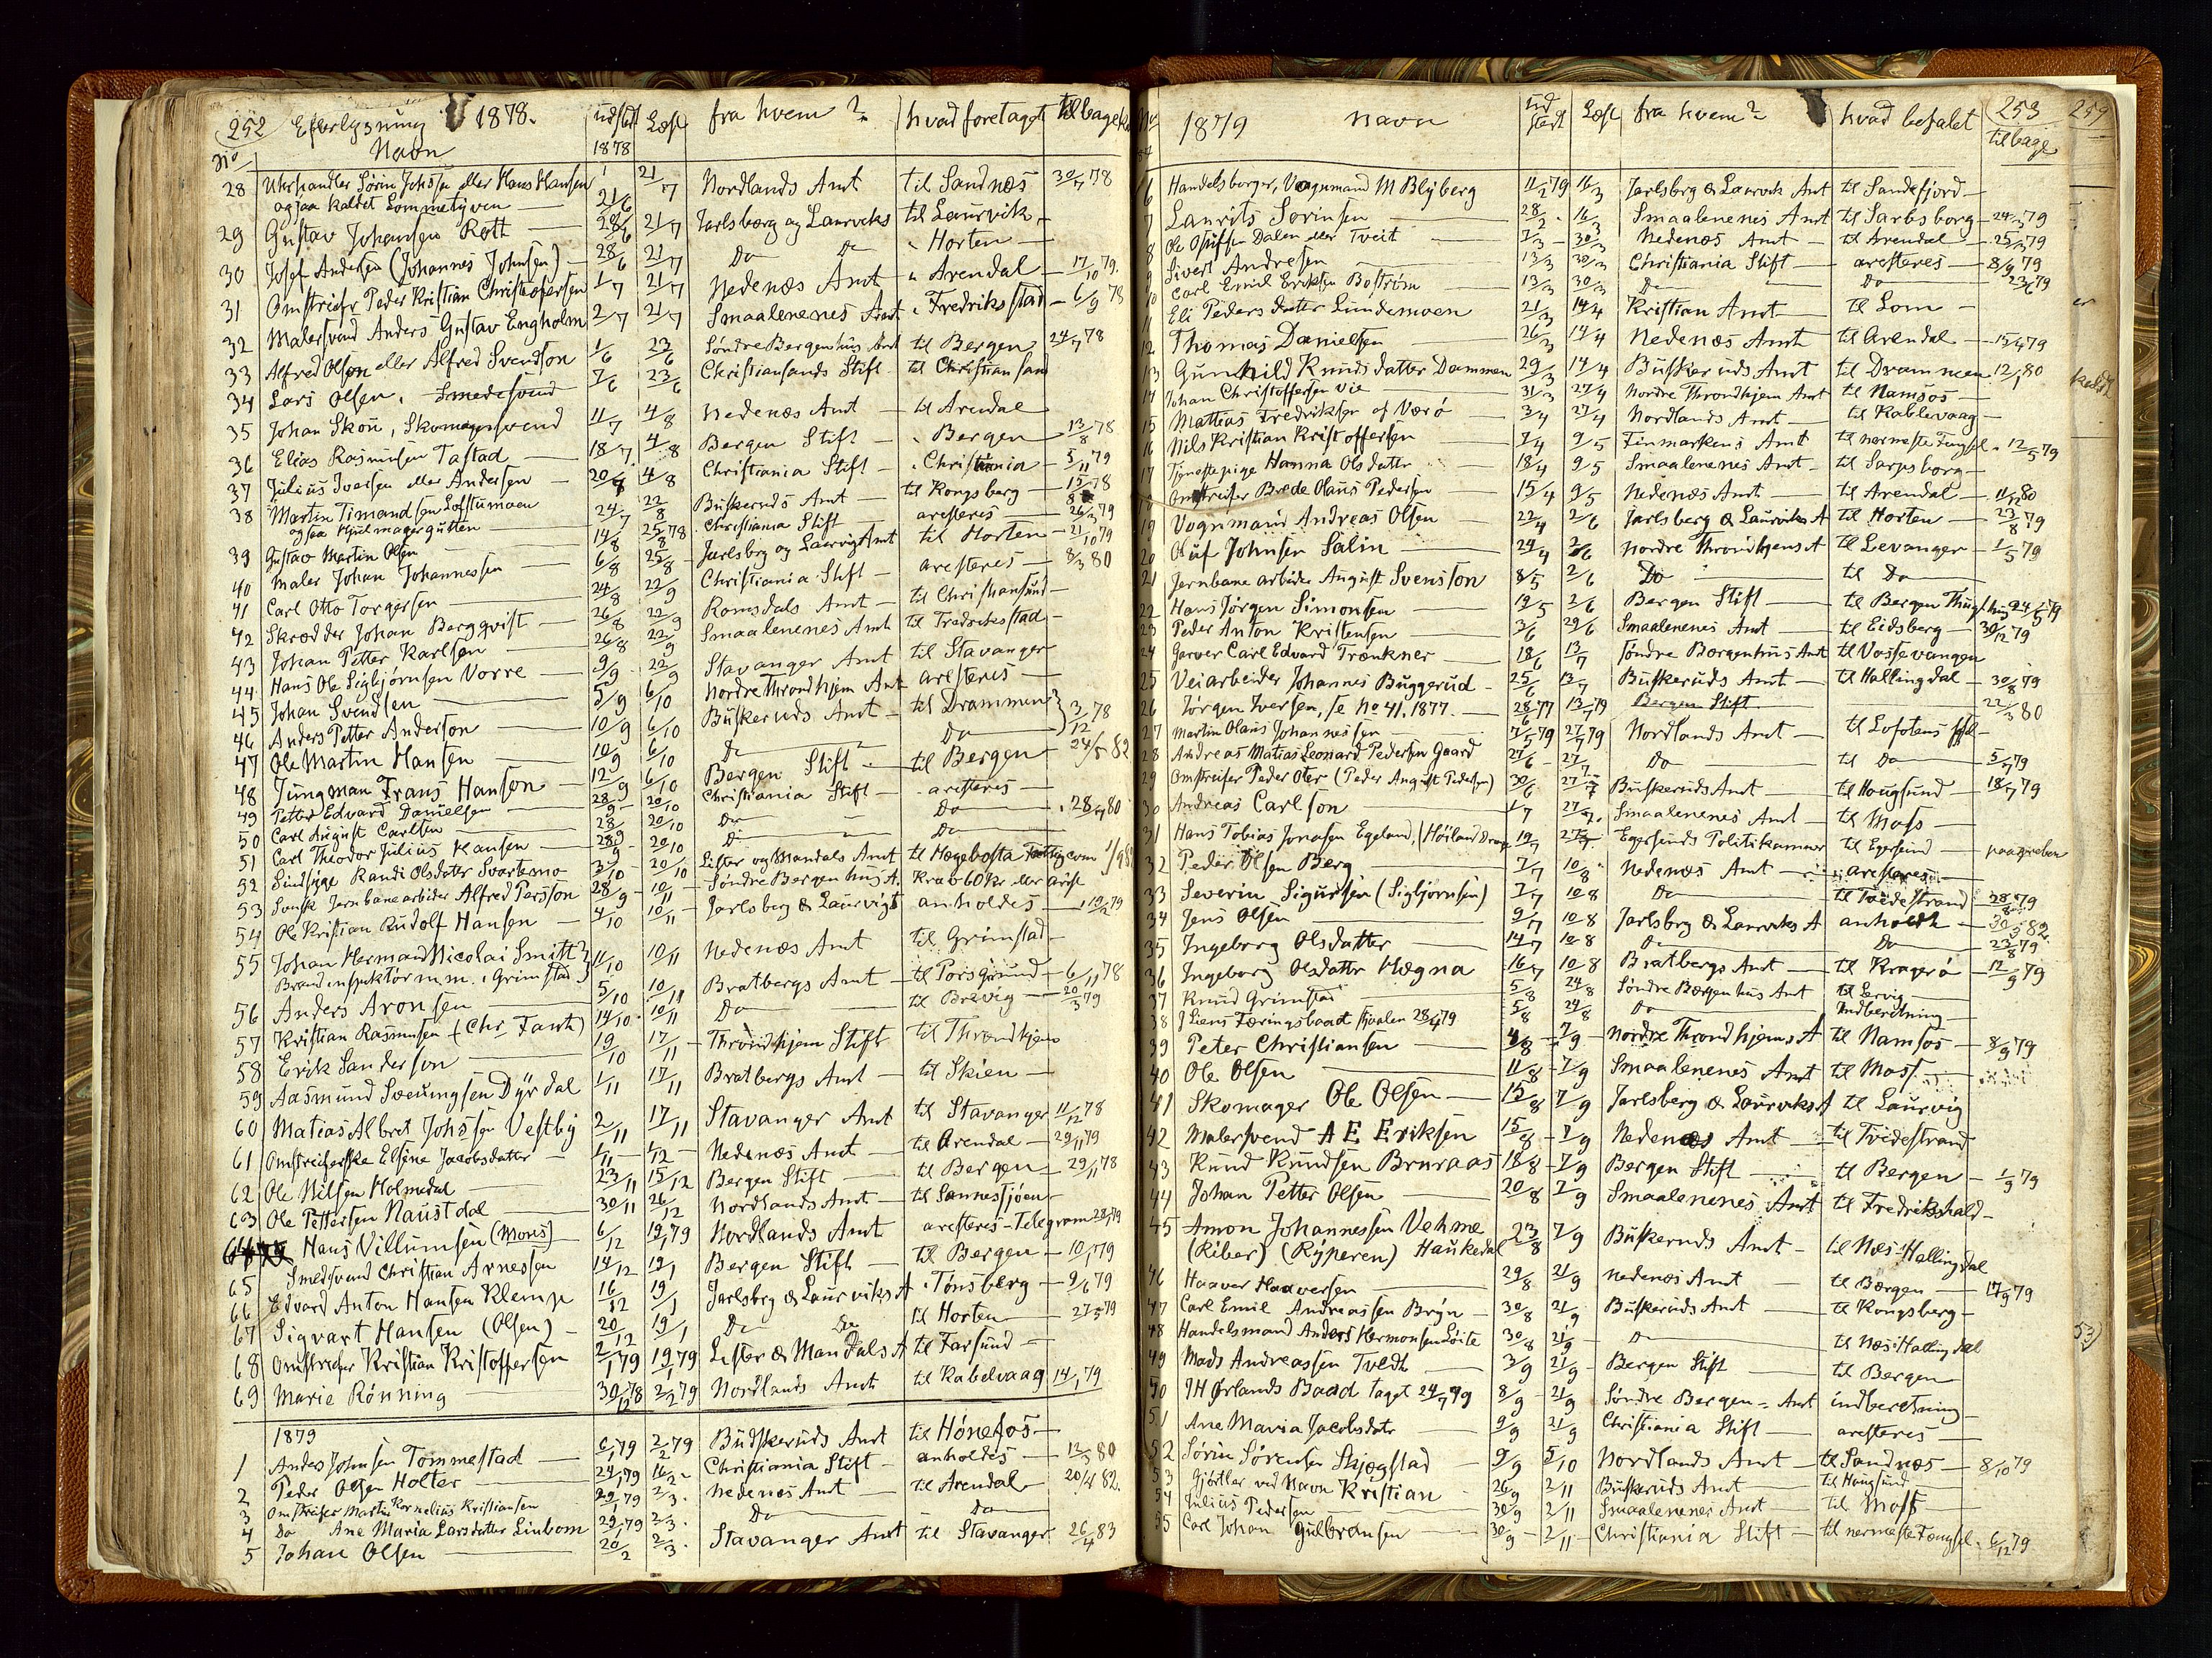 252 Efterlysning 1878. udstedt Læst fra hvem? hvad foretaget tilbagek
No Navn 1878
28 Uhrhandler Sörin Johssen eller Hans Hansen 21/6 21/7 Nordlands Amt til Sandnæs 30/7 78
ogsaa kaldet Lommetyven
29 Gustav Johansen Rott 28/6 21/7 Jarlsberg og Laurviks til Laurvik
30 Josef Andersen (Johannes Johnsen) 28/6 21/7 Do Do " Horten
31 Omstreifer Peder Kristian Christofersen 1/7 21/7 Nedenæs Amt " Arendal 17/10 79.
32 Malersvend Anders Gustav Engholm 2/7 21/7 Smaalenenes Amt " Fredrikstad 6/9 78
33 Alfred Olson eller Alfred Svendson 1/6 23/6 Söndre Bergenhus Amt til Bergen 24/7 78
34 Lars Olsen, Smedesvend 7/6 23/6 Christiansands Stift til Christiansand
35 Johan Skou, Skomagersvend 11/7 4/8 Nedenæs Amt til Arendal
36 Elias Rasmusen Tastad 18/7 4/8 Bergen Stift " Bergen 13/8 78
37 Julius Iversen eller Andersen 20/7 4/8 Christiania Stift " Christiania 5/11 79
38 Martin Timandsen Lofstumoen 24/7 22/8 Buskeruds Amt til Kongsberg 15/8 78
ogsaa Hjulmagergutten
39 Gustav Martin Olsen 14/8 25/8 78 Christiania Stift aresteres 26/2 79
40 Maler Johan Johannessen 6/8 25/8 Jarlsbrg og Laurvigs Amt til Horten 21/10 79
41 Carl Otto Torgersen 24/8 22/9 Christiania Stift aresteres 8/3 80
42 Skrædder Johan Bergqvist 26/8 22/9 Romsdals Amt til Christiansund
43 Johan Petter Karlsen 26/8 22/9 Smaalenenes Amt til Fredriksstad
44 Hans Ole Sigbjörnsen Vorre 9/9 22/9 Stavanger Amt til Stavanger
45 Johan Svendsen 5/9 6/10 Nordre Throndhjem Amt aresteres
46 Anders Petter Anderson 10/9 6/10 Buskeruds Amt til Drammen 3/12 78
47 Ole Martin Hansen 10/9 6/10 Do Do
48 Jungman Frans Hanson 12/9 6/10 Bergen Stift til Bergen 24/5 82
49 Petter Edvard Danielsen 28/9 20/10 Christiania Stift aresteres
50 Carl August Carlsen 28/9 20/10 Do Do 28/7 80
51 Carl Theodor Julius Hansen 28/9 20/10 Do Do
52 Sindsyge Randi Olsdatter Svartemo 3/10 20/10 Lister og Mandals Amt til Hægebosta Fattigcom
53 Svensk Jernbanearbeider Alfred Persson 28/9 10/11 Söndre Bergenhus A. Krav 60 kr eller arest
54 Ole Kristian Rudolf Hansen 4/10 10/11 Jarlsberg & Laurvigs anholdes 19/2 79
55 Johan Herman Nicolai Smitt 11/10 10/11 Nedenæs Amt til Grimstad
Brandinspektör m.m. i Grimstad
56 Anders Aronsen 5/10 10/11 Bratbergs Amt til Porsgrund 6/11 78
57 Kristian Rasmusen (Chr. Fanth) 14/10 10/11 Do til Brevig 20/3 79
58 Erik Sanderson 19/10 17/11 Throndhjem Stift til Throndhjem
59 Aasmund Sveinungsen Dyrdal 1/11 17/11 Bratbergs Amt til Skien
60 Matias Albret Johssen Vestby 2/11 17/11 Stavanger Amt til Stavanger 11/12 78
61 Omstreiferske Elsine Jacobsdatter 7/11 1/12 Nedenæs Amt til Arendal 29/11 79
62 Ole Nilsen Holmedal 23/11 15/12 Bergen Stift til Bergen 29/11 78
63 Ole Pettersen Naustdal 30/11 26/12 Nordlands Amt til Sannessjöen
64 Hans Villumsen (Mons) 6/12 19/1 79 Nordlands Amt aresteres Telegram 28/1 79
65 Smedsvend Christian Arnesen 14/12 19/1 Bergen Stift til Bergen 10/1 79
66 Edvard Anton Hansen Klemp 16/12 19/1 Jarlsbrg & Laurviks A " Tönsberg 9/6 79
67 Sigvart Hansen (Olsen) 20/12 19/1 Do Do til Horten 27/5 79
68 Omstreifer Kristian Kristoffersen 2/1 79 19/1 79 Lister & Mandals A til Farsund
69 Marie Rönning 30/12 78 2/2 79 Nordlands Amt til Kabelvaag 14/1 79
1879
1 Anders Johnsen Tommestad 6/1 79 2/2 79 Buskeruds Amt til Hönefos
2 Peder Olsen Holter 24/1 79 16/2 Christiania Stift anholdes 13/3 80
3 Omstreifer Martin Kornelius Kristiansen 29/1 79 2/3 Nedenæs Amt til Arendal 20/4 82.
4 Do Ane Maria Larsdatter Linbom 29/1 79 2/3 Do Do
5 Johan Olsen 20/2 2/3 Stavanger Amt til Stavanger 26/4 83
No 1879 Navn udstedt Læst fra hvem? hvad befalet 253 tilbage
259
6 Handelsborger, Vognmand M Blyberg 11/2 79 16/3 Jarlsbrg & Laurvik Amt til Sandefjord
7 Laurits Sörinsen 28/2 16/3 Smaalenenes Amt til Sarbsborg 24/3 79
8 Ole Olufsen Dalen eller Tveit 7/3 30/3 Nedenæs Amt til Arendal 25/3 79
9 Sivert Andresen 13/3 30/3 Christiania Stift aresteres 8/9 79
10 Carl Emil Eriksen Boström 13/3 30/3 Do Do 23/6 79
11 Eli Pedersdatter Lundemoen 21/3 14/4 Kristian Amt til Lom
12 Thomas Danielsen 26/3 14/4 Nedenæs Amt til Arendal 15/4 79
13 Gunhild Knudsdatter Dammen 29/3 14/4 Buskeruds Amt til Drammen 12/1 80
14 Johan Christoffersen Vie 31/3 27/4 Nordre Throndhjem Amt til Namsos
15 Mattias Fredriksen af Værö 3/4 27/4 Nordlands Amt til Kablevaag
16 Nils Kristian Kristoffersen 7/4 9/5 Finmarkens Amt til nærmeste Fengsel 12/5 79
17 Tjenestepige Hanna Olsdatter 18/4 9/5 Smaalenenes Amt til Sarpsborg
18 Omstreifer Brede Olaus Pedersen 15/4 9/5 Nedenæs Amt til Arendal 11/3 80
19 Vognmand Andreas Olsen 22/4 2/6 Jarlsberg & Laurviks A til Horten 23/8 79
20 Oluf Johnsen Salin 24/4 2/6 Nordre Throndhjems A til Levanger 1/5 79
21 Jernbanearbeider August Svensson 8/5 2/6 Do til Do
22 Hans Jörgen Simonsen 19/5 2/6 Bergen Stift til Bergen
23 Peder Anton Kristensen 3/6 29/6 Smaalenenes Amt til Eidsberg 30/12 79
24 Garver Carl Edvard Trænkner 18/6 13/7 Söndre Bergenhus Amt til Vossevangen
25 Veiarbeider Johannes Buggerud 25/6 13/7 Buskeruds Amt til Hallingdal 30/8 79
26 Jörgen Iversen, se No 41, 1877. 28/6 77 13/7 79 Bergen Stift 22/3 80
27 Martin Olaus Johannessen 7/5 79 27/7 79 Nordlands Amt til Lofotens
28 Andreas Matias Leonard Pedersen Gaard 27/6 27/7 Do til Do 5/7 79
29 Omstreifer Peder Oter (Peder August Pedersen) 30/6 27/7 Buskeruds Amt til Hougsund 18/7 79
30 Andreas Carlson 1/7 27/7 Smaalenenes Amt til Moss
31 Hans Tobias Jonassen Egeland, (Höiland 19/7 27/7 Egersunds Politikammer til Egersund paagreben
32 Peder Olsen Berg 7/7 10/8 Nedenæs Amt aresteres
33 Severin Sigursen (Sigbjörnsen) 7/7 10/8 Do til Tvedestrand 28/8 79
34 Jens Olsen 9/7 10/8 Jarlsbrg & Laurviks A anholdt 30/5 82.
35 Ingeborg Olsdatter 14/7 10/8 Do Do 23/8 79
36 Ingeborg Olsdatter Hægna 16/7 10/8 Bratbergs Amt til Kragerö 12/9 79
37 Knud Grimstad 5/8 24/8 Söndre Bergenhus Amt til Lervig
38 J Liens Færingsbaad stjaalen 28/4 79 5/8 24/8 Do Indberetning
39 Peter Christiansen 4/8 7/9 Nordre Throndhjems A til Namsos 8/9 79
40 Ole Olsen 11/8 7/9 Smaalenenes Amt til Moss
41 Skomager Ole Olsen 15/8 7/9 Jarlsberg & Laurviks A til Laurvig
42 Malersvend A E Eriksen 15/8 7/9 Nedenæs Amt til Tvedestrand
43 Knud Knudsen Bruraas 18/8 7/9 Bergen Stift til Bergen 1/9 79
44 Johan Petter Olsen 20/8 7/9 Smaalenenes Amt til Fredrikshald
45 Amon Johannessen Vehme 23/8 7/9 Buskeruds Amt til Næs i Hallingdal
(Riber) (Ryperen) Haukedal
46 Haaver Haaversen 29/8 21/9 Nedenæs Amt til Bergen 17/9 79
47 Carl Emil Andreassen Bryn 30/8 21/9 Buskeruds Amt til Kongsberg
48 Handelsmand Anders Hermonsen Löite 30/8 21/9 Do til Næs i Hallingdal
49 Mads Andreassen Tvedt 3/9 21/9 Bergen Stift til Bergen
50 JH Örlands Baad taget 24/7 79 8/9 21/9 Söndre Bergen= Amt indberetning
51 Ane Maria Jacobsdatr 9/9 21/9 Christiania Stift aresteres
52 Sörin Sörensen Skjægstad 9/9 5/10 Nordlands Amt til Sandnæs 8/10 79
53 Gjörtler ved Navn Kristian 26/9 2/11 Buskeruds Amt til Hougsund
54 Julius Pedersen 30/9 2/11 Smaalenenes Amt til Moss
55 Carl Johan Gulbransen 30/9 2/11 Christiania Stift til nærmeste Fængsel 6/12 79